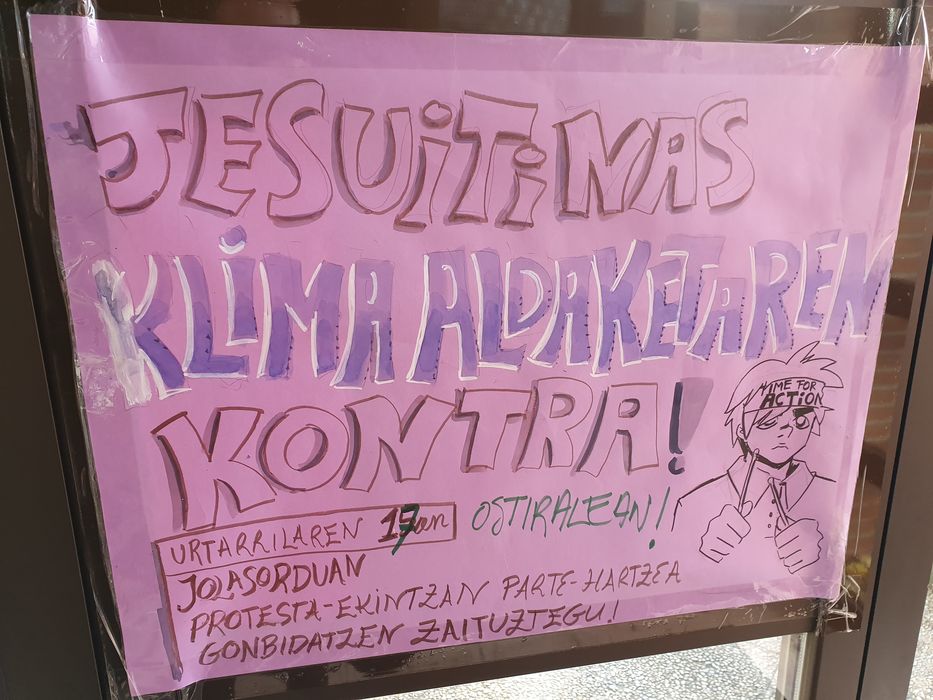 JESUITINAS
KLIMA ALDAKETAREN
KONTRA!
TIME FOR
ACTION
URTARRILAREN 17an OSTIRALEAN!
JOLASORDUAN
PROTESTA-EKINTZAN PARTE-HARTZEA
GONBIDATZEN ZAITUZTEGU!